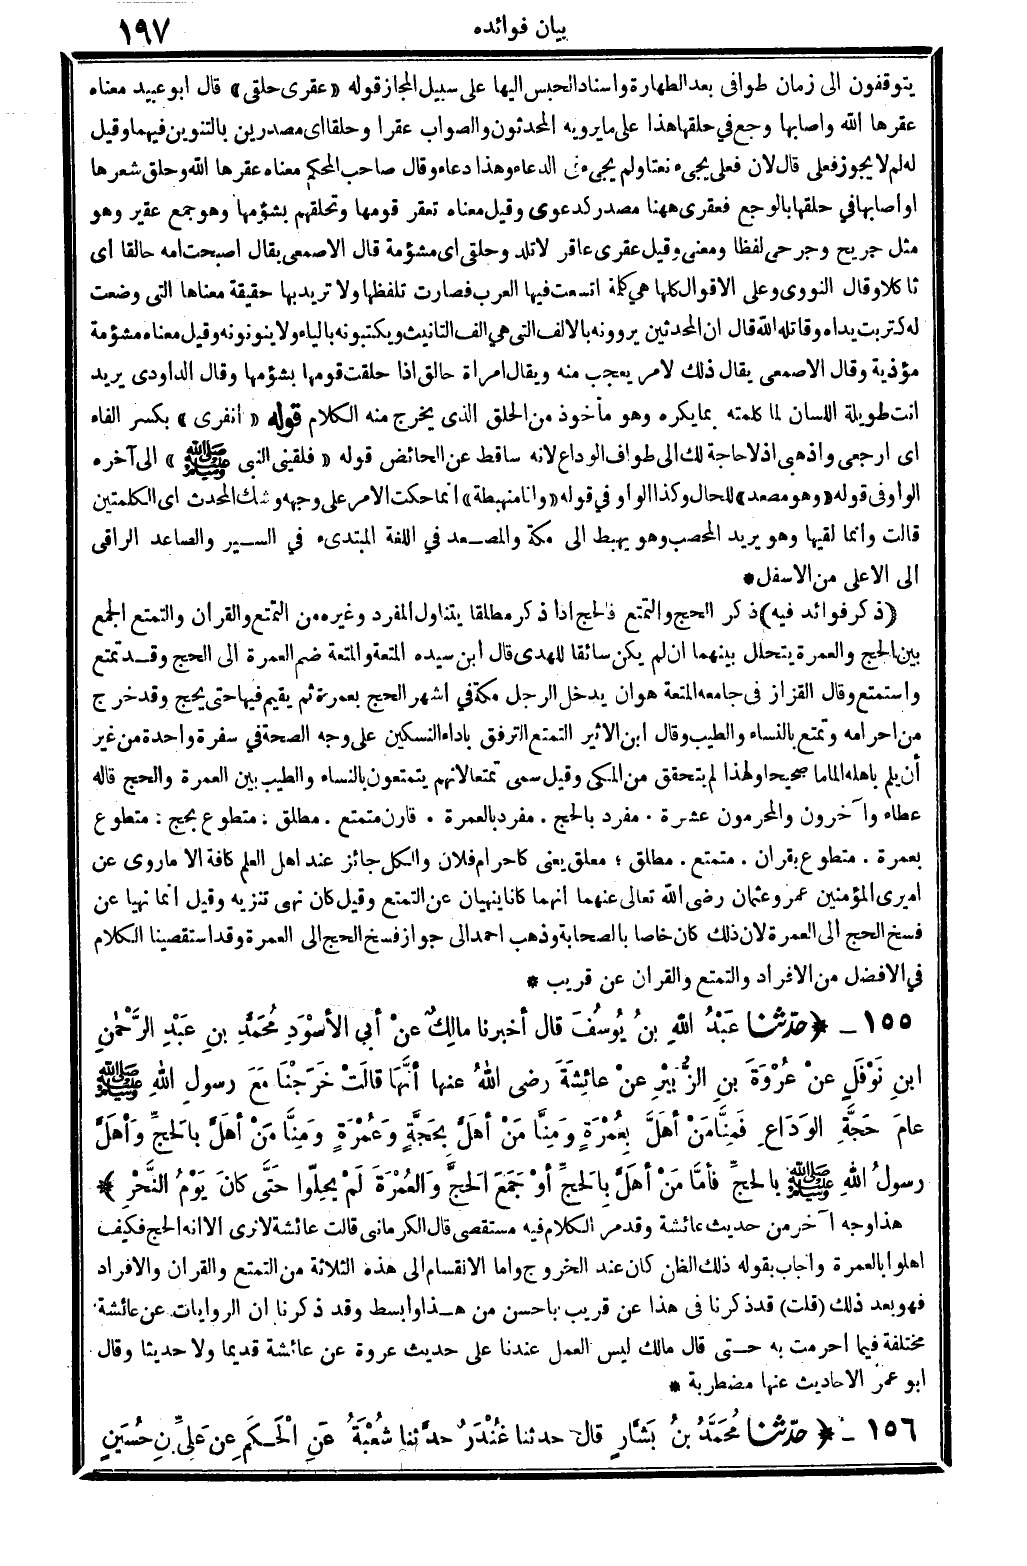 بيان فوائده
١٩٧
يتوقفون الى زمان طوافى بعد الطهارة واسناد الحبس اليها على سبيل المجاز قوله «عقرى حلقى» قال ابو عبيد معناه
عقرها الله واصابها وجع في حلقها هذا على ما يرويه المحدثون والصواب عقرا وحلقا اى مصدرين بالتنوين فيهما وقيل
له لم لا يجوز فعلى قال لان فعلى يجىء نعتا ولم يجىء فى الدعاء وهذا دعاء وقال صاحب المحكم معناه عقرها الله وحلق شعرها
او اصابها في حلقها بالوجع فعقرى ههنا مصدر كدعوى وقيل معناه تعقر قومها وتحلقهم بشؤمها وهو جمع عقير وهو
مثل جريح وجرحى لفظا ومعنى وقيل عقرى عاقر لا تلد وحلقى اى مشؤمة قال الاصمعى يقال اصبحت امه حالقا اى
ثاكلا وقال النووى وعلى الاقوال كلها هي كلمة اتسعت فيها العرب فصارت تلفظها ولا تريد بها حقيقة معناها التى وضعت
له كتربت يداه وقاتله الله قال ان المحدثين يروونه بالالف التى هي الف التانيث ويكتبونه بالياء ولا ينونونه وقيل معناه مشؤمة
مؤذية وقال الاصمعى يقال ذلك لامر يعجب منه ويقال امراة حالق اذا حلقت قومها بشؤمها وقال الداودى يريد
انت طويلة اللسان لما كلمته بما يكره وهو مأخوذ من الحلق الذى يخرج منه الكلام قوله «انفرى» بكسر الفاء
اى ارجعى واذهبى اذ لا حاجة لك الى طواف الوداع لانه ساقط عن الحائض قوله «فلقينى النبى ﷺ» الى آخره
الواو فى قوله «وهو مصعد» للحال وكذا الواو في قوله «وانا منهبطة» انما حكت الامر على وجهه وشك المحدث اى الكلمتين
قالت وانما لقيها وهو يريد المحصب وهو يهبط الى مكة والمصعد في اللغة المبتدىء في السير والصاعد الراقى
الى الاعلى من الاسفل*
(ذكر فوائد فيه) ذكر الحج والتمتع فالحج اذا ذكر مطلقا يتناول المفرد وغيره من التمتع والقران والتمتع الجمع
بين الحج والعمرة يتحلل بينهما ان لم يكن سائقا للهدى قال ابن سيده المتعة والمتعة ضم العمرة الى الحج وقد تمتع
واستمتع وقال القزاز فى جامعه المتعة هو ان يدخل الرجل مكة في اشهر الحج بعمرة ثم يقيم فيها حتى يحج وقد خرج
من احرامه وتمتع بالنساء والطيب وقال ابن الاثير التمتع الترفق باداء النسكين على وجه الصحة في سفرة واحدة من غير
أن يلم باهله الماما صحيحا ولهذا لم يتحقق من المكى وقيل سمى تمتعا لانهم يتمتعون بالنساء والطيب بين العمرة والحج قاله
عطاء وآخرون والمحرمون عشرة . مفرد بالحج . مفرد بالعمرة . قارن متمتع . مطلق : متطوع بحج : متطوع
بعمرة . متطوع بقران . متمتع . مطلق ؛ معلق يعنى كاحرام فلان والكل جائز عند اهل العلم كافة الا ما روى عن
اميرى المؤمنين عمر وعثمان رضى الله تعالى عنهما انهما كانا ينهيان عن التمتع وقيل كان نهى تنزيه وقيل انما نهيا عن
فسخ الحج الى العمرة لان ذلك كان خاصا بالصحابة وذهب احمد الى جواز فسخ الحج الى العمرة وقد استقصينا الكلام
في الافضل من الافراد والتمتع والقران عن قريب *
١٥٥ ـ ﴿حدّثنا عَبْدُ اللهِ بنُ يُوسُفَ قال أخبرنا مالِكٌ عنْ أبي الأسْوَدِ مُحَمَّدِ بنِ عَبْدِ الرَّحْمٰنِ
ابنِ نَوْفَلٍ عنْ عُرْوَةَ بنِ الزُّبَيْرِ عنْ عائِشَةَ رضى اللهُ عنها أنَّهَا قالَتْ خَرَجْنَا مَعَ رسولِ اللهِ ﷺ
عامَ حَجَّةِ الوَدَاعِ فَمِنَّا مَنْ أهَلَّ بِعُمْرَةٍ ومِنَّا مَنْ أهَلَّ بِحَجَّةٍ وَعُمْرَةٍ ومِنَّا مَنْ أهَلَّ بالحَجِّ وأهَلَّ
رسولُ اللهِ ﷺ بالحَجِّ فأمَّا مَنْ أهَلَّ بِالحَجِّ أوْ جَمَعَ الحَجَّ والعُمْرَةَ لَمْ يحِلّوا حَتَّى كانَ يَوْمُ النَّحْرِ﴾*
هذا وجه آخر من حديث عائشة وقد مر الكلام فيه مستقصى قال الكرمانى قالت عائشة لا نرى الا انه الحج فكيف
اهلوا بالعمرة واجاب بقوله ذلك الظن كان عند الخروج واما الانقسام الى هذه الثلاثة من التمتع والقران والافراد
فهو بعد ذلك (قلت) قد ذكرنا فى هذا عن قريب باحسن من هذا وابسط وقد ذكرنا ان الروايات عن عائشة
مختلفة فيما احرمت به حتى قال مالك ليس العمل عندنا على حديث عروة عن عائشة قديما ولا حديثا وقال
ابو عمر الاحاديث عنها مضطربة *
١٥٦ ـ ﴿حدّثنا مُحَمَّدُ بنُ بَشَّارٍ قال حدثنا غُنْدَرٌ حدّثنا شُعْبَةُ عَنِ الْحَكَمِ عنْ عَلِيِّ بنِ حُسَيْنٍ